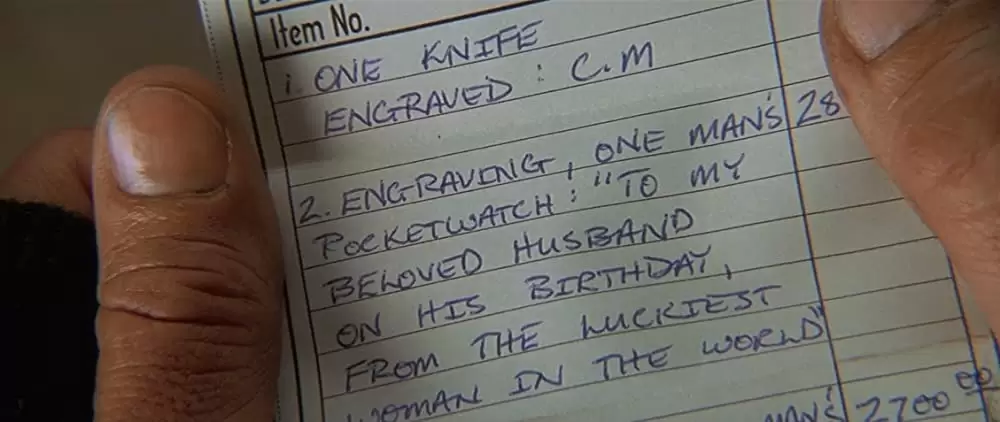 Item No.
1. ONE KNIFE
ENGRAVED : C.M
2. ENGRAVING, ONE MAN'S 28
POCKETWATCH : "TO MY
BELOVED HUSBAND
ON HIS BIRTHDAY,
FROM THE LUCKIEST
WOMAN IN THE WORLD"
MAN'S 2700 00